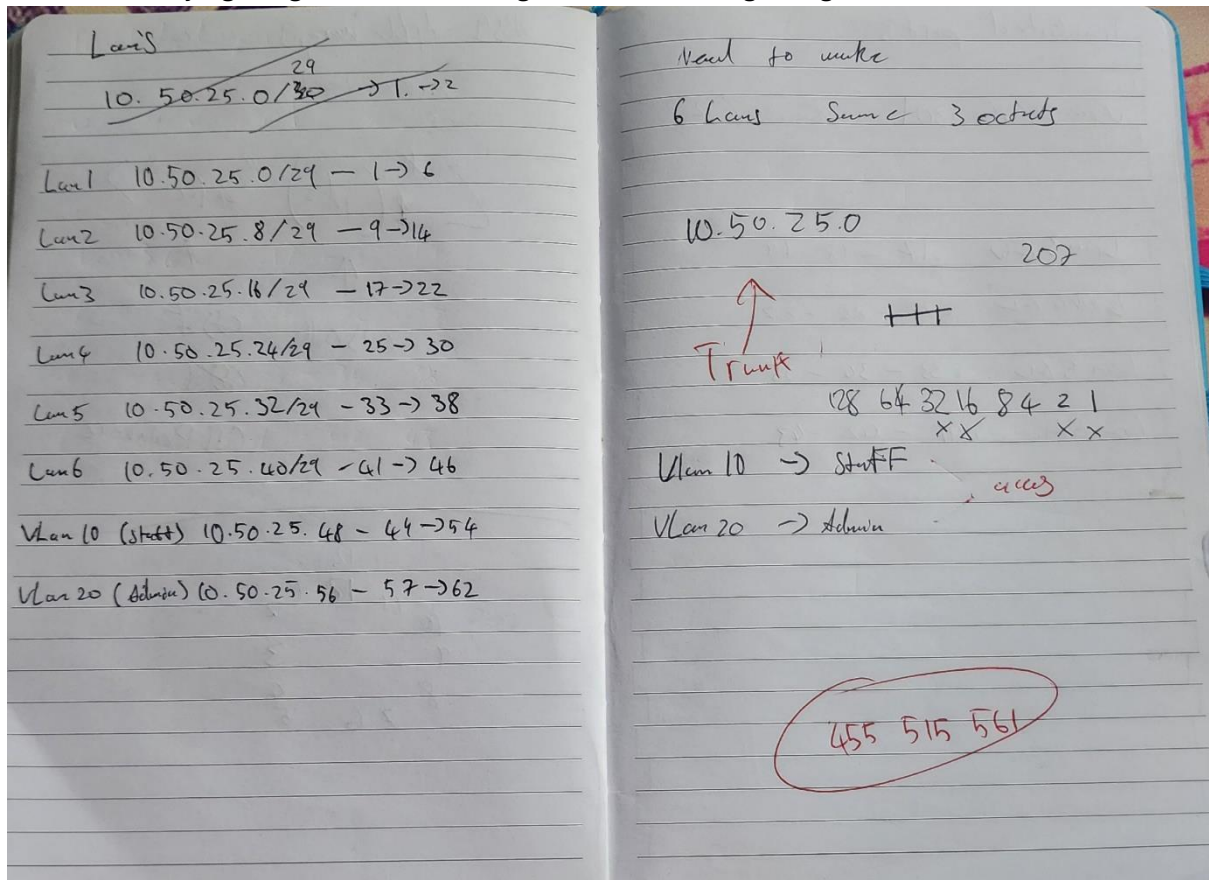 Lan's
29
10.50.25.0/30 → 1. → 2
Lan1 10.50.25.0/29 – 1 → 6
Lan2 10.50.25.8/29 – 9 → 14
Lan3 10.50.25.16/29 – 17 → 22
Lan4 10.50.25.24/29 – 25 → 30
Lan5 10.50.25.32/29 – 33 → 38
Lan6 10.50.25.40/29 – 41 → 46
VLan 10 (Staff) 10.50.25.48 – 49 → 54
VLan 20 (Admin) 10.50.25.56 – 57 → 62
Need to make
6 Lans Same 3 octets
10.50.25.0
207
Trunk
128 64 32 16 8 4 2 1
x x x x
Vlan 10 → Staff
VLan 20 → Admin
455 515 561